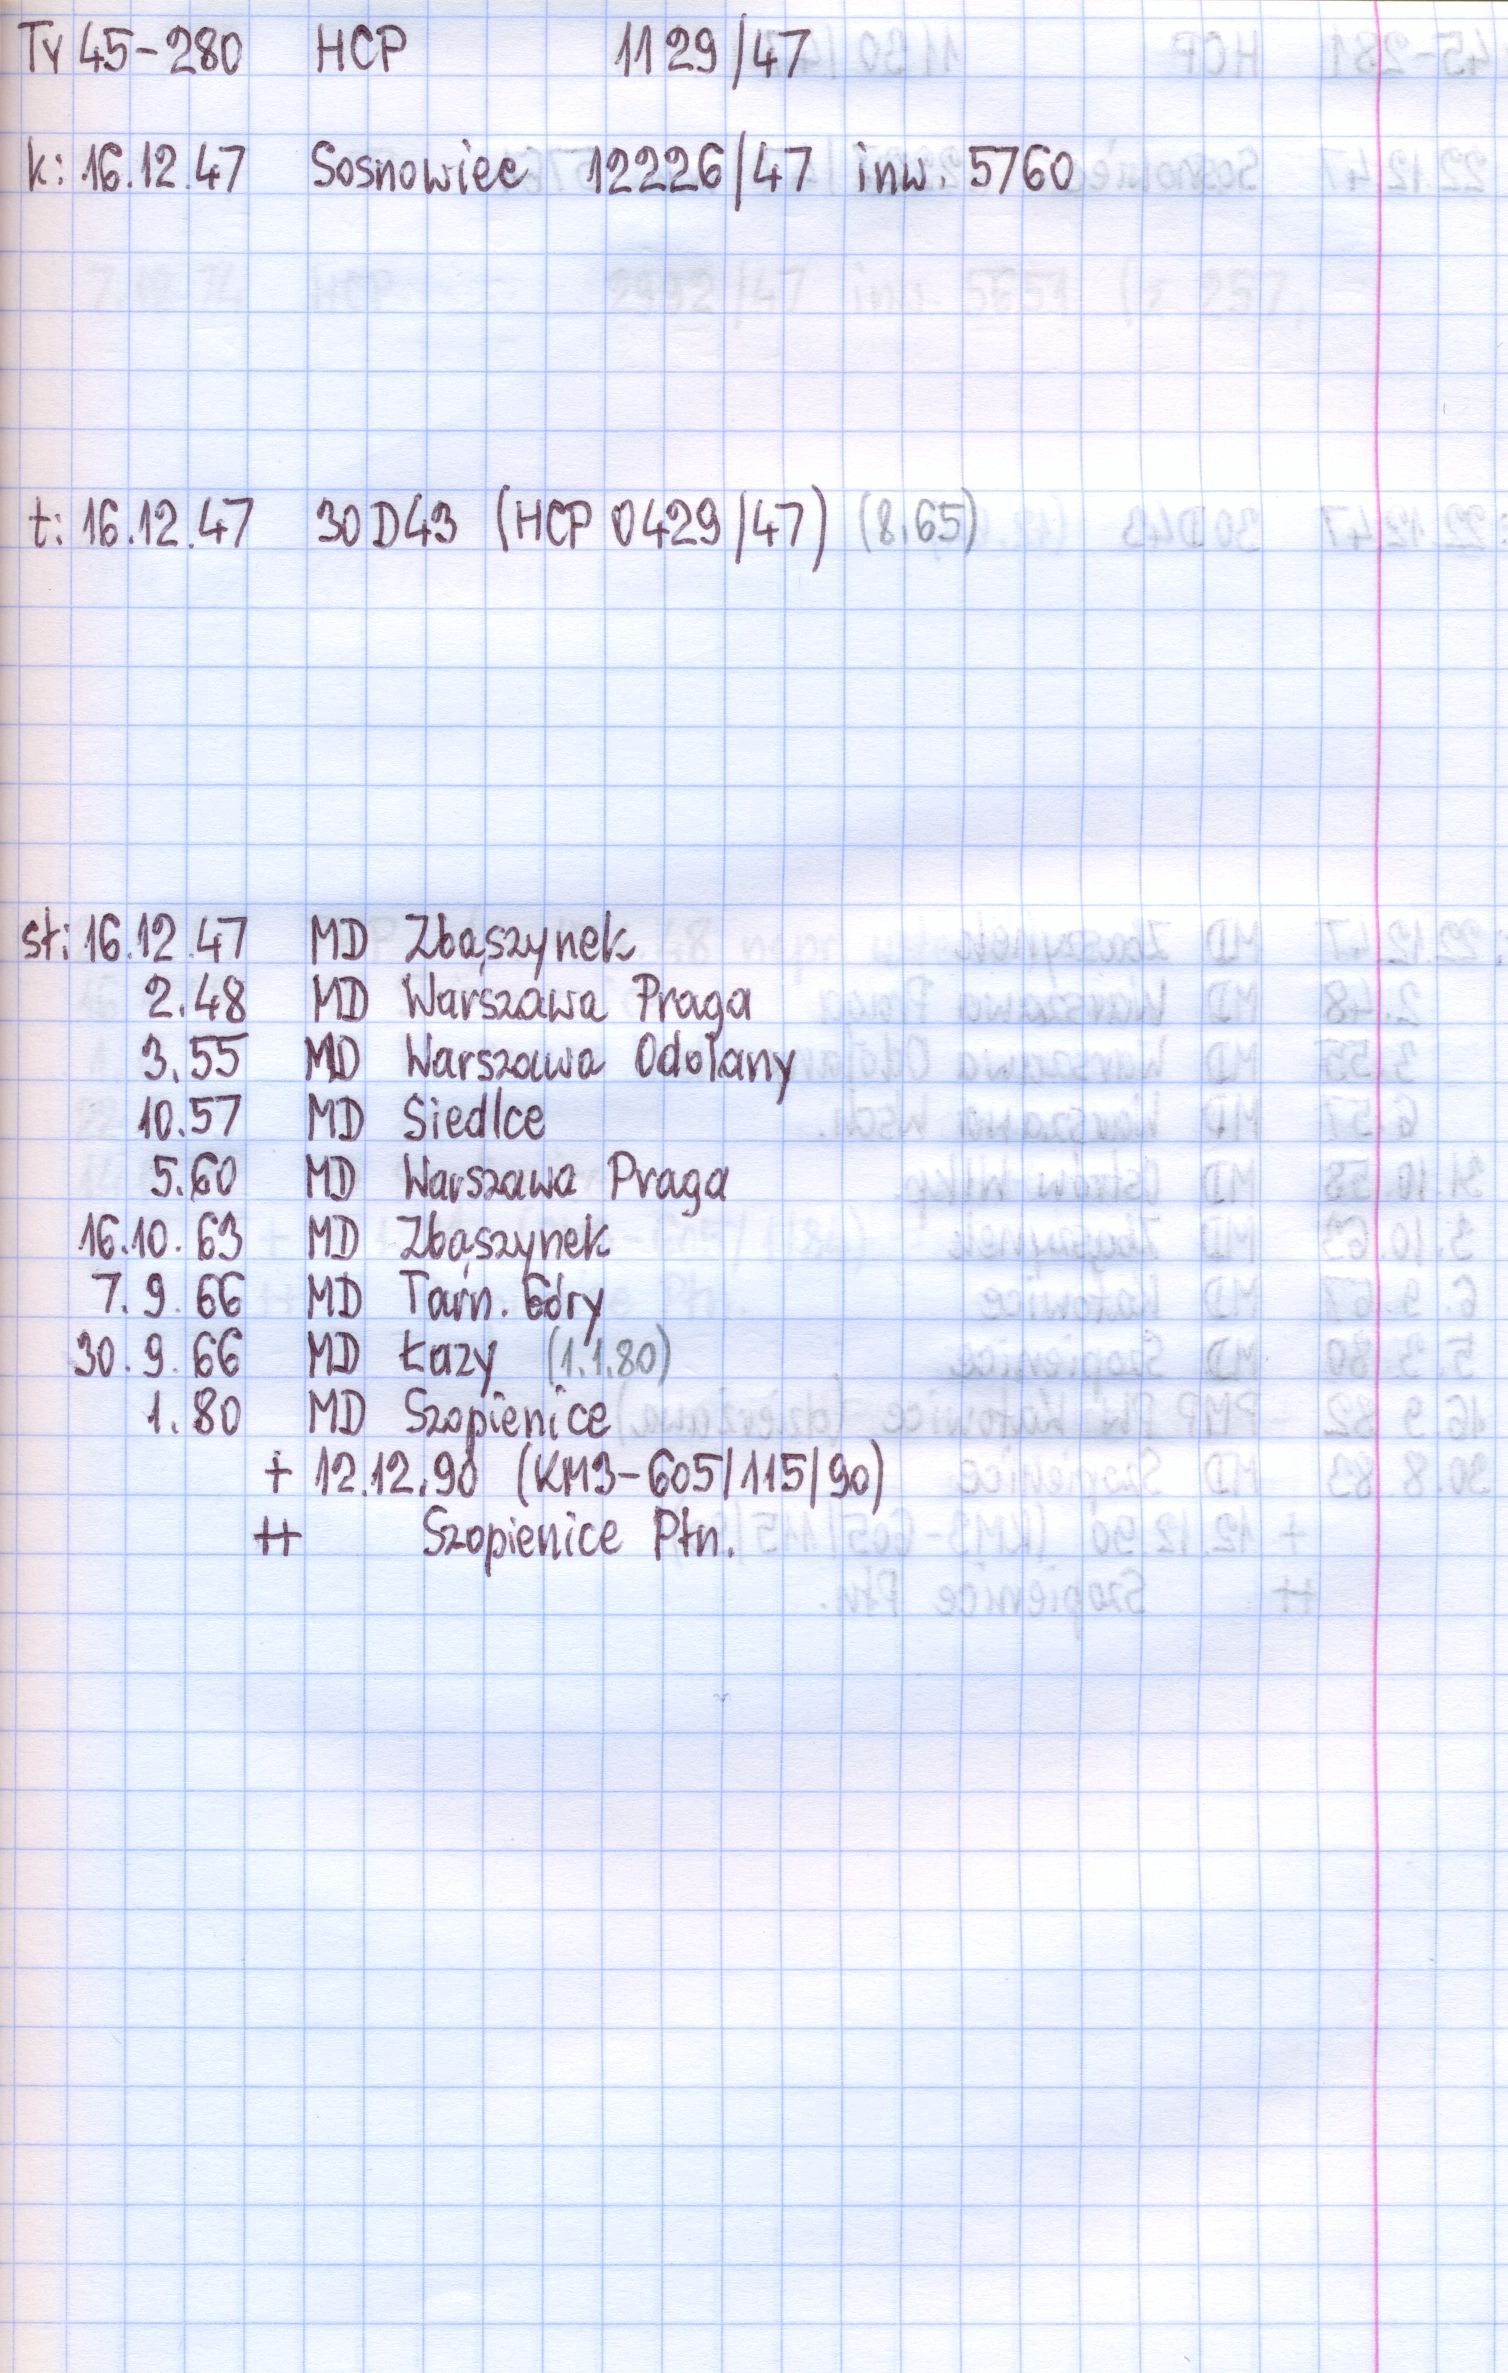 Ty 45-280 HCP 1129/47
k: 16.12.47 Sosnowiec 12226/47 inw. 5760
t: 16.12.47 30D43 (HCP 0429/47) (8.65)
st: 16.12.47 MD Zbąszynek
2.48 MD Warszawa Praga
3.55 MD Warszawa Odolany
10.57 MD Siedlce
5.60 MD Warszawa Praga
16.10.63 MD Zbąszynek
7.9.66 MD Tarn. Góry
30.9.66 MD Łazy (1.1.80)
1.80 MD Szopienice
+ 12.12.90 (KM3-605/115/90)
++ Szopienice Płn.